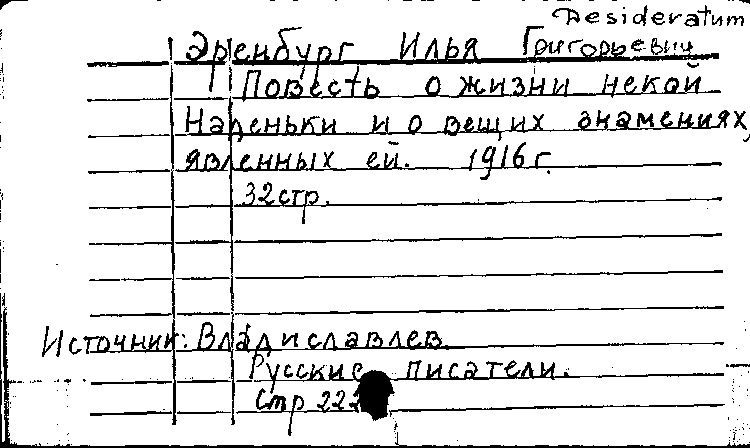 Desideratum
Эренбург Илья Григорьевич
Повесть о жизни некой
Наденьки и о вещих знамениях,
явленных ей. 1916 г.
32 стр.
Источник: Владиславлев
Русские писатели.
Стр 222